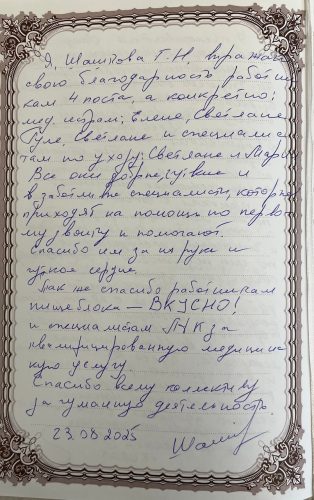 Я, Шашкова Г.Н, выражаю
свою благодарность работни
кам 4 поста, а конкретно:
мед. сестрам: Елене, Светлане
Гуле, Светлане и специалис
там по уходу: Светлане и Марии
Все они добрые, чуткие и
заботливые специалисты, которые
приходят на помощь по перво
му звонку и помогают.
Спасибо им за их руки и
чуткое сердце.
Так же спасибо работникам
пищеблока — ВКУСНО!
и специалистам за
квалифицированную медицинс
кую услугу.
Спасибо всему коллективу
за гуманную деятельность.
23.08.2025